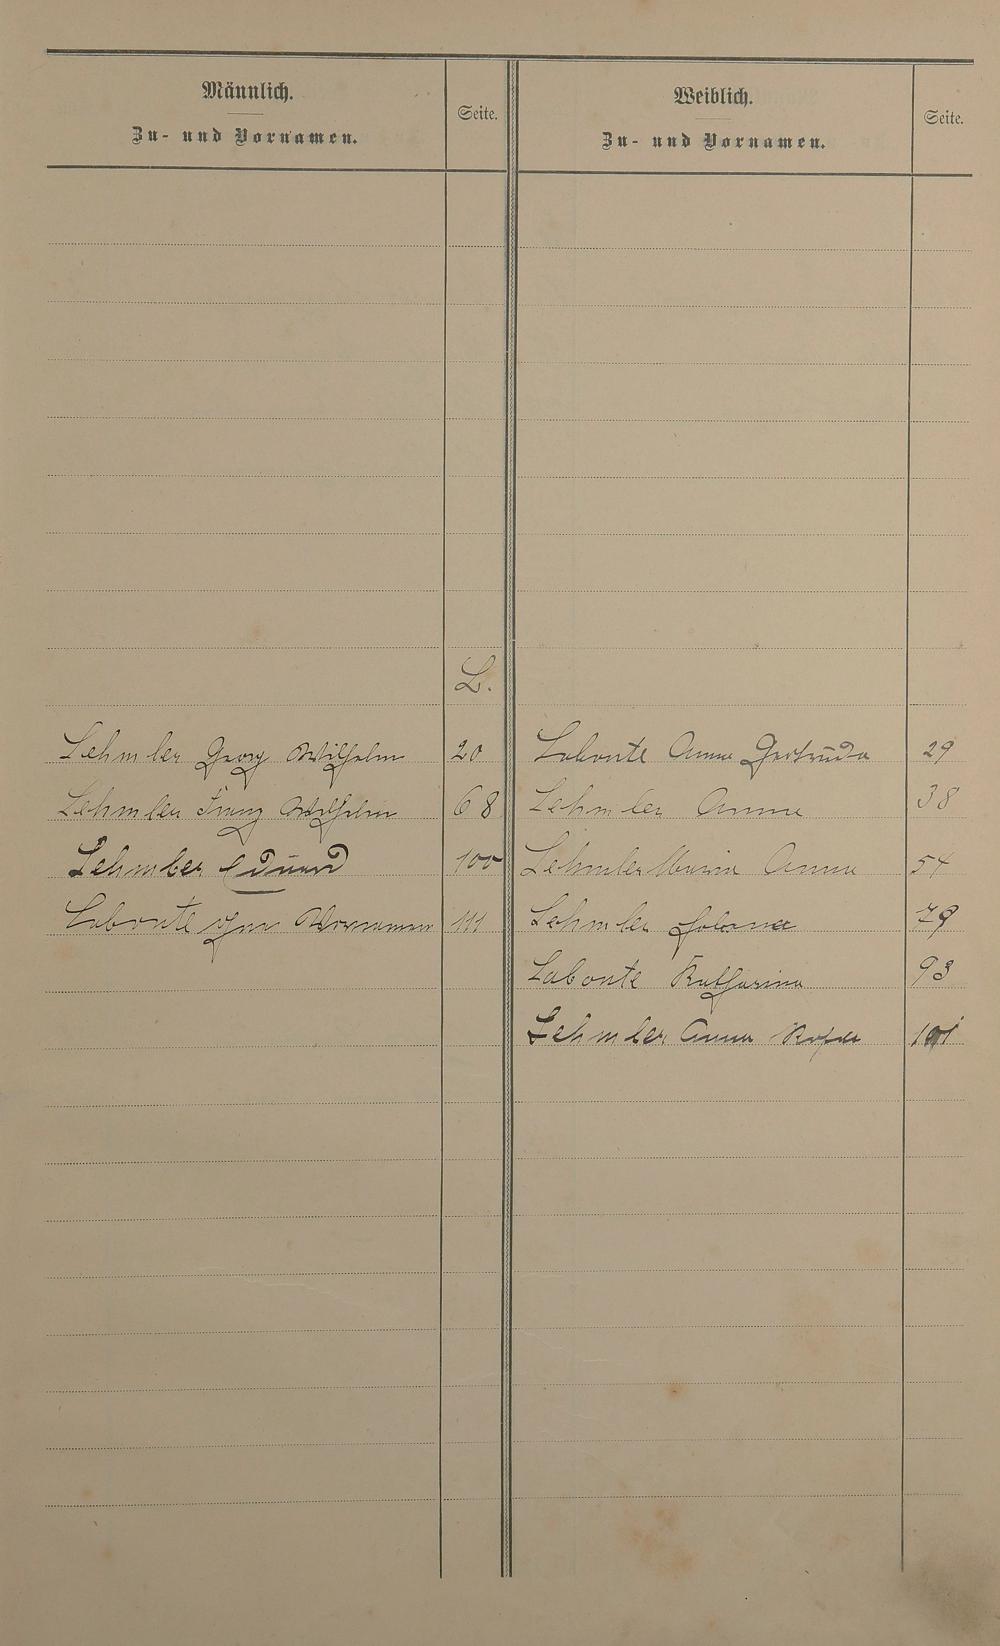 Männlich.
Zu- und Vornamen.
Seite.
Weiblich.
Zu- und Vornamen.
Seite.
L.
Lehmler Georg Wilhelm 20
Labonte Anna Gertruda 29
Lehmler Franz Wilhelm 68
Lehmler Anna 38
Lehmler Eduard 100
Lehmler Maria Anna 54
Labonte ohne Vornamen 111
Lehmler 79
Labonte Katharina 93
Lehmler Anna Rosa 101